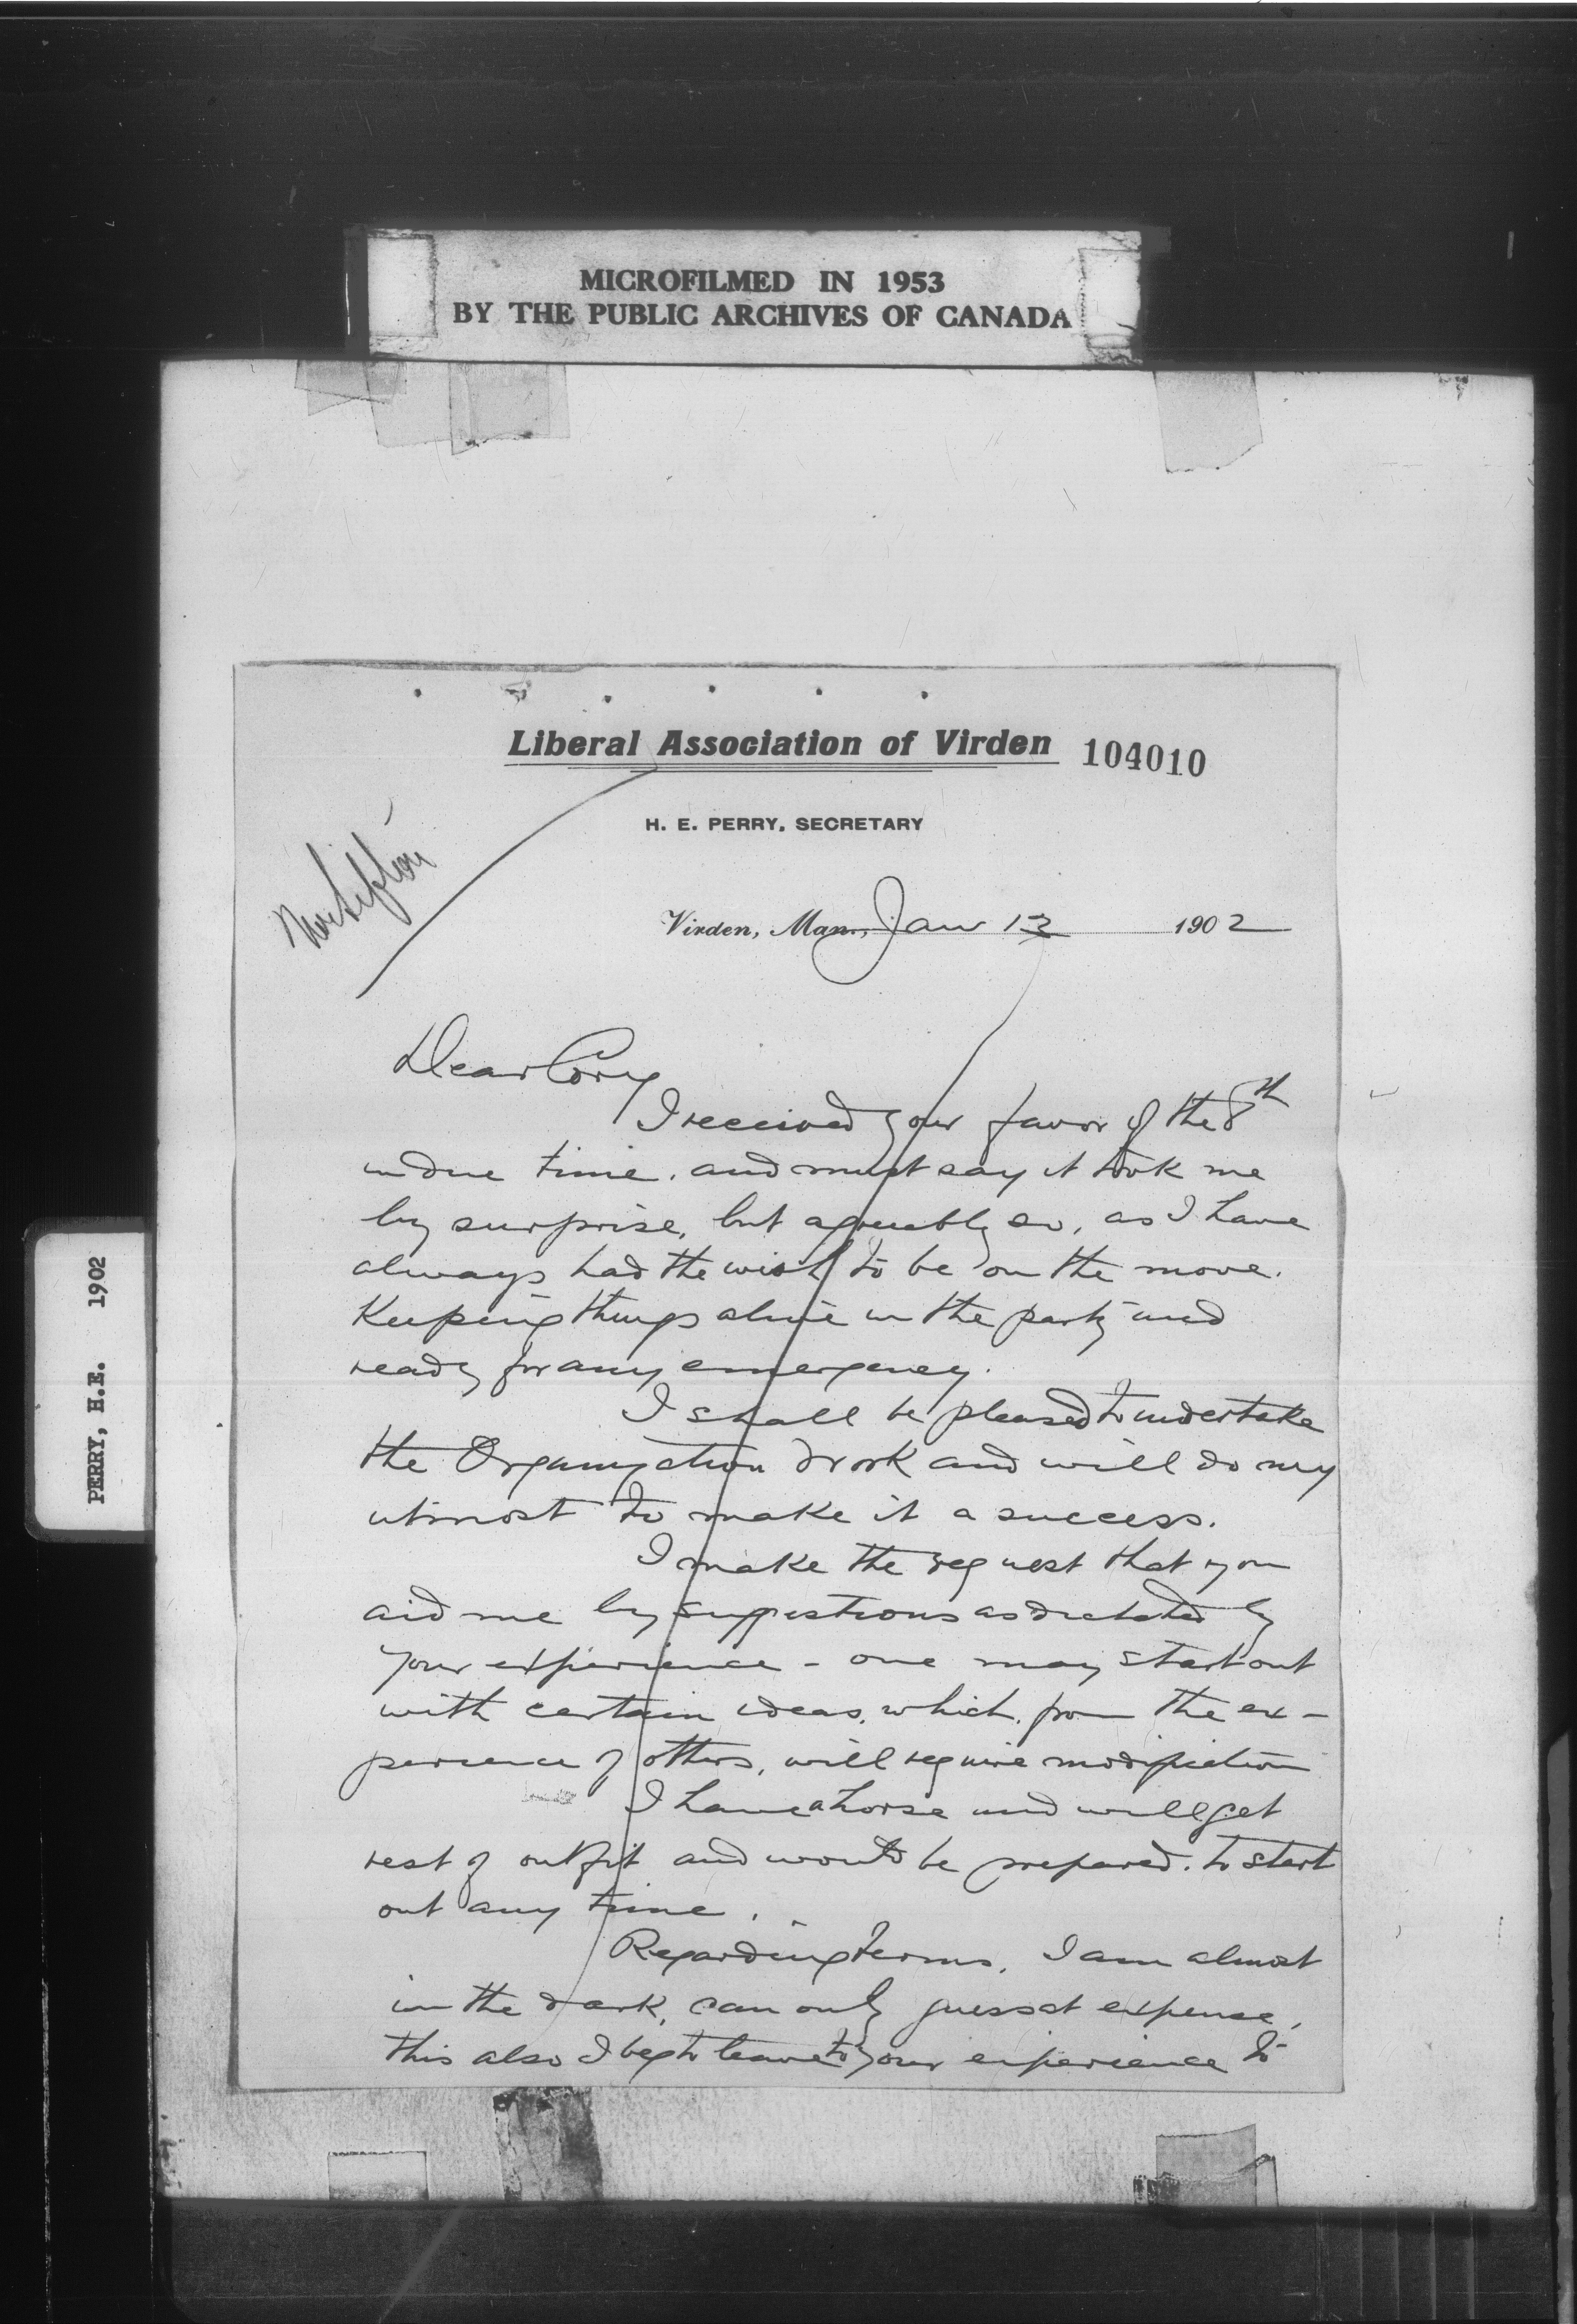 MICROFILMED IN 1953
BY THE PUBLIC ARCHIVES OF CANADA
PERRY, H.E. 1902
Liberal Association of Virden 104010
H. E. PERRY, SECRETARY
Virden, Man., Jan 13 1902
Dear Cory
I received your favor of the 8th
in due time. and must say it took me
by surprise, but agreeably so, as I have
always had the wish to be on the move.
Keeping things alive in the party and
ready for any emergency.
I shall be pleased to undertake
the Organization work and will do my
utmost to make it a success.
I make the request that you
aid me by suggestions as dictated by
your experience - one may start out
with certain ideas, which, from the ex-
perience of others, will require modification
I have a horse and will get
rest of outfit and would be prepared. to start
out any time.
Regarding terms, I am almost
in the dark, can only guess at expense,
this also I beg to leave to your experience to